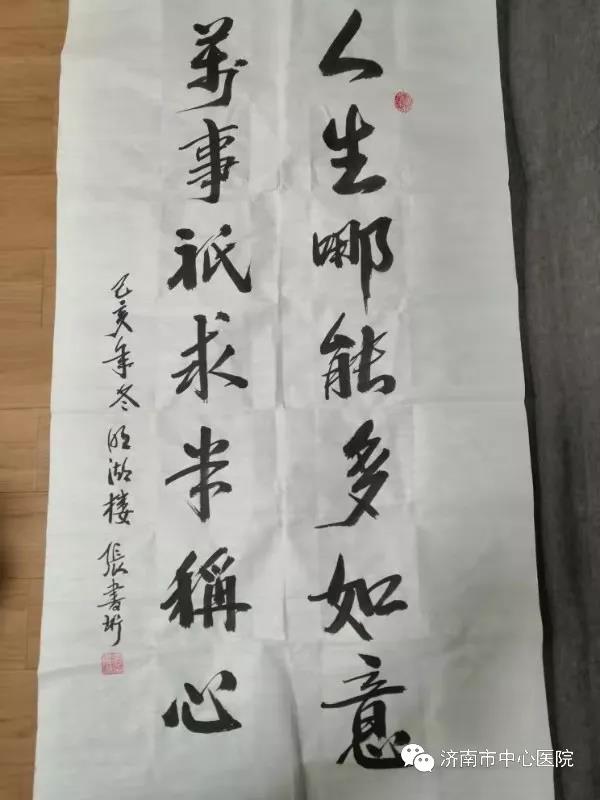 人生哪能多如意
萬事祇求半稱心
己亥年冬明湖楼張書
济南市中心医院